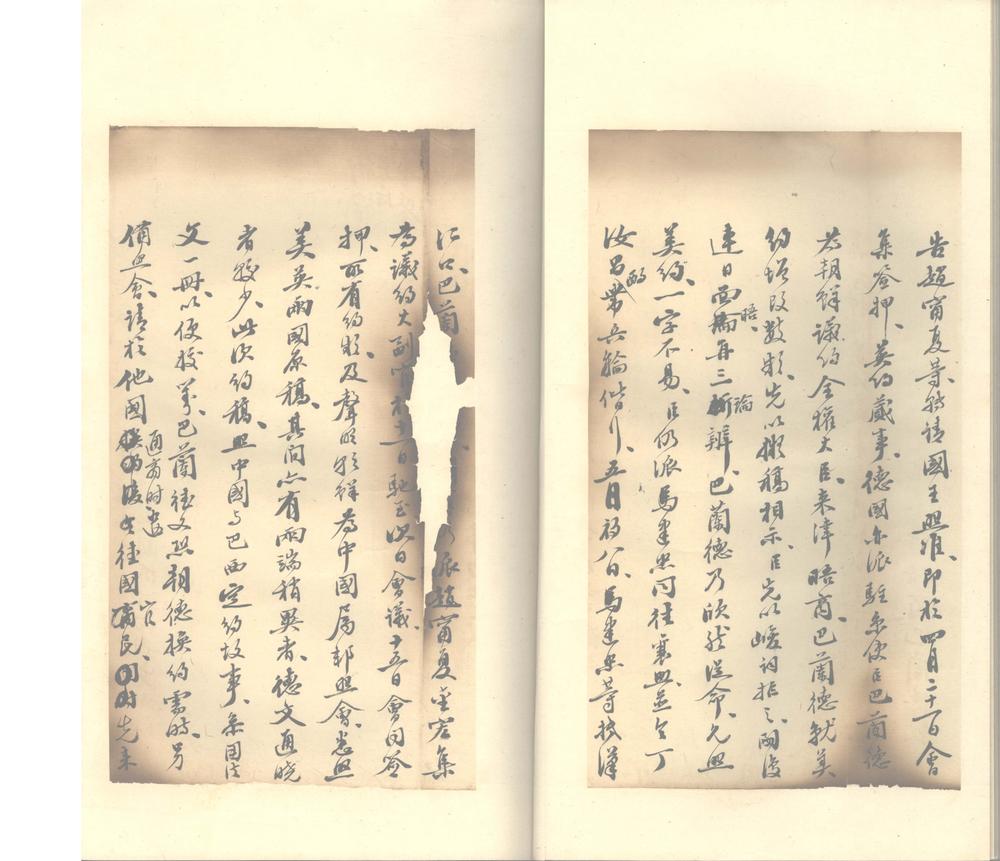 告趙甯夏等轉請國王照准即於四月二十一日會
集簽押英約蕆事德國亦派駐京使臣巴蘭德
為朝鮮議約全權大臣來津晤商巴蘭德就英
約增改數款先以擬稿相示臣先以峻詞拒之嗣復
連日面晤再三論辯巴蘭德乃欣然從命允照
美約一字不易臣仍派馬建忠同往襄照並令丁
汝昌酌帶兵輪偕行五月初八日馬建忠等抵漢
江口巴蘭 派趙甯夏金宏集
為議約大副官於十一日馳至次日會議十五日會同簽
押所有約款及聲明朝鮮為中國屬邦照會悉照
美英兩國原稿其間亦有兩端稍異者德文通曉
者較少此次約稿照中國與巴西定約故事兼用法
文一冊以便校覈巴蘭德又恐朝德換約需時另
備照會請於他國通商時遇 往德國官民 先來